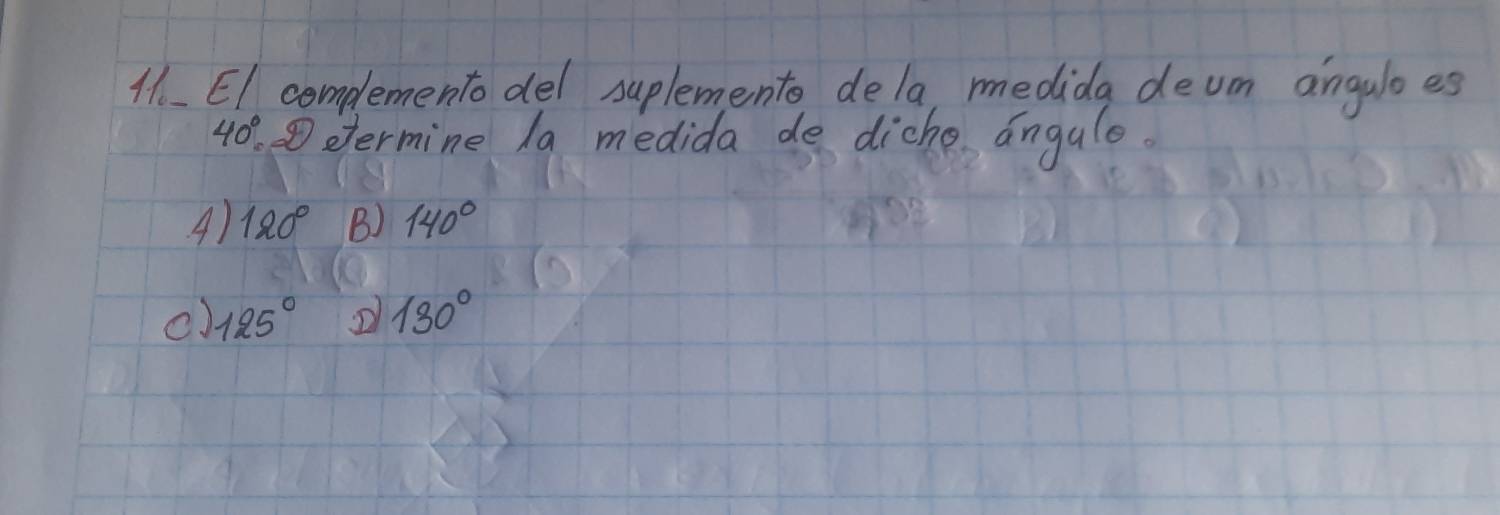 11._ El complemento del suplemento de la medida de um ángulo es
40°. Determine la medida de dicho ángulo.
A) 120° B) 140°
C) 125° D) 130°